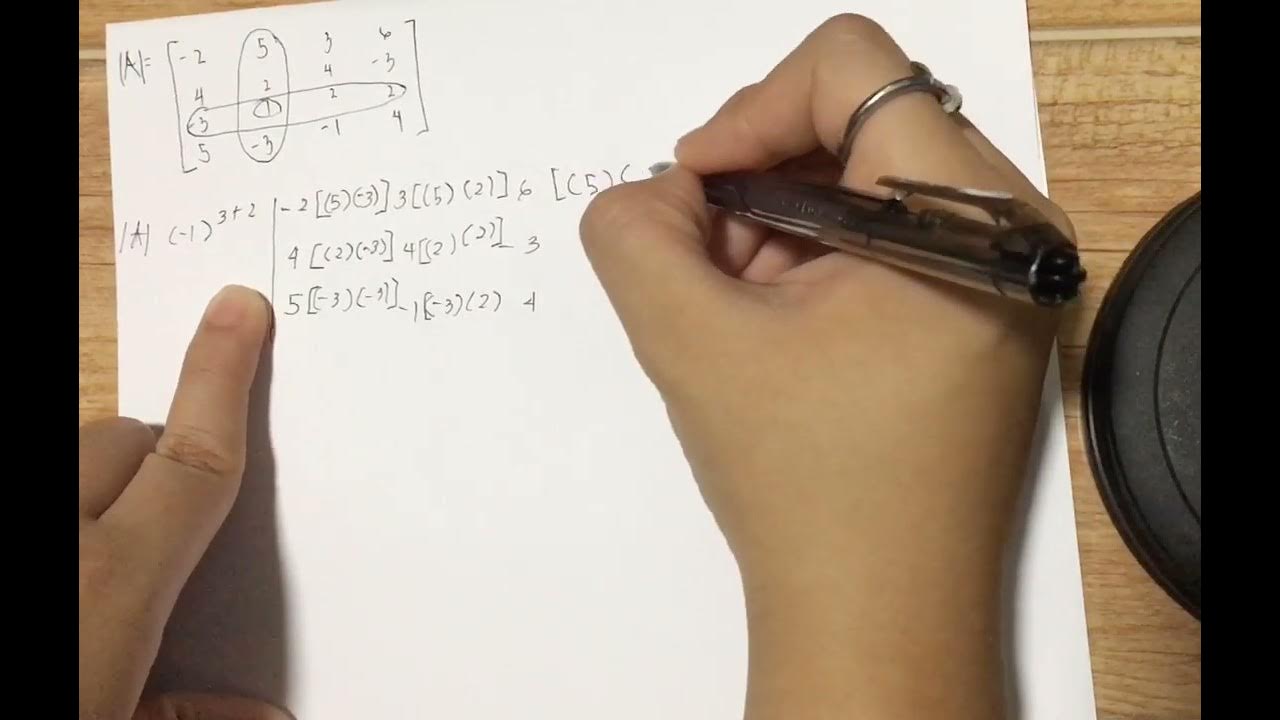 |A|= [ -2 5 3 6
4 2 4 -3
-3 1 2 2
5 -3 -1 4 ]
|A| (-1)^3+2 | -2[(5)(-3)] 3[(5)(2)] 6 [(5)(
4[(2)(-3)] 4[(2)(2)] - 3
5[(-3)(-3)] -1[(-3)(2) 4